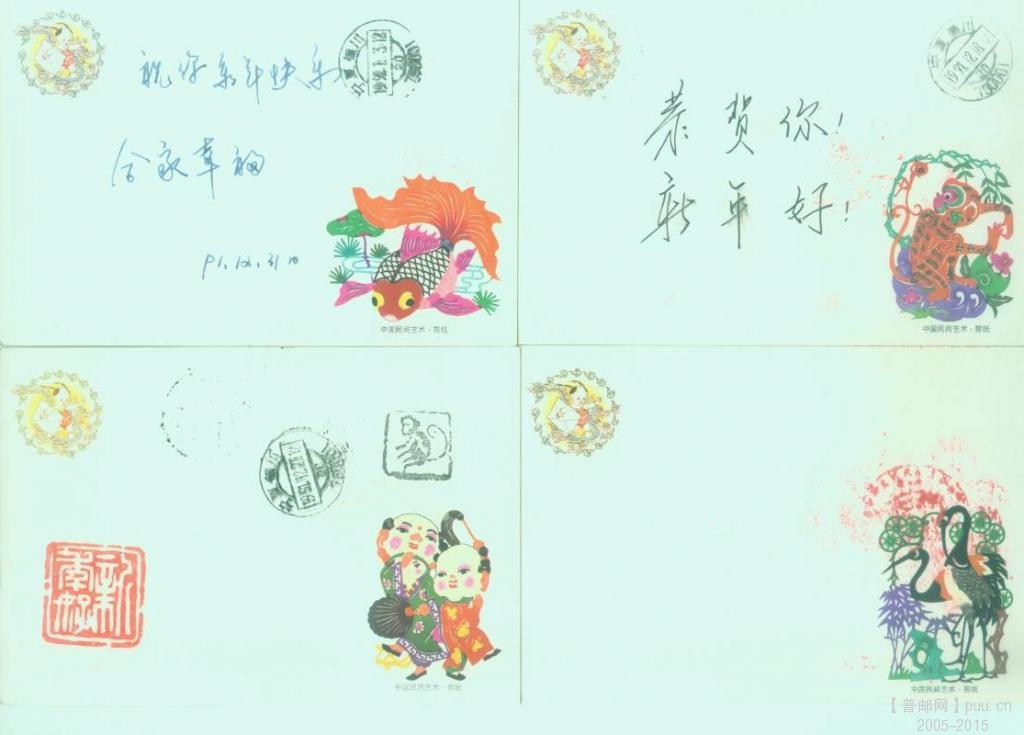 祝你 新年快乐
合家幸福
91.12.31日
中国民间艺术·剪纸
恭贺你!
新年好!
中国民间艺术·剪纸
中国民间艺术·剪纸
中国民间艺术·剪纸
【普邮网】puu.cn
2005-2015